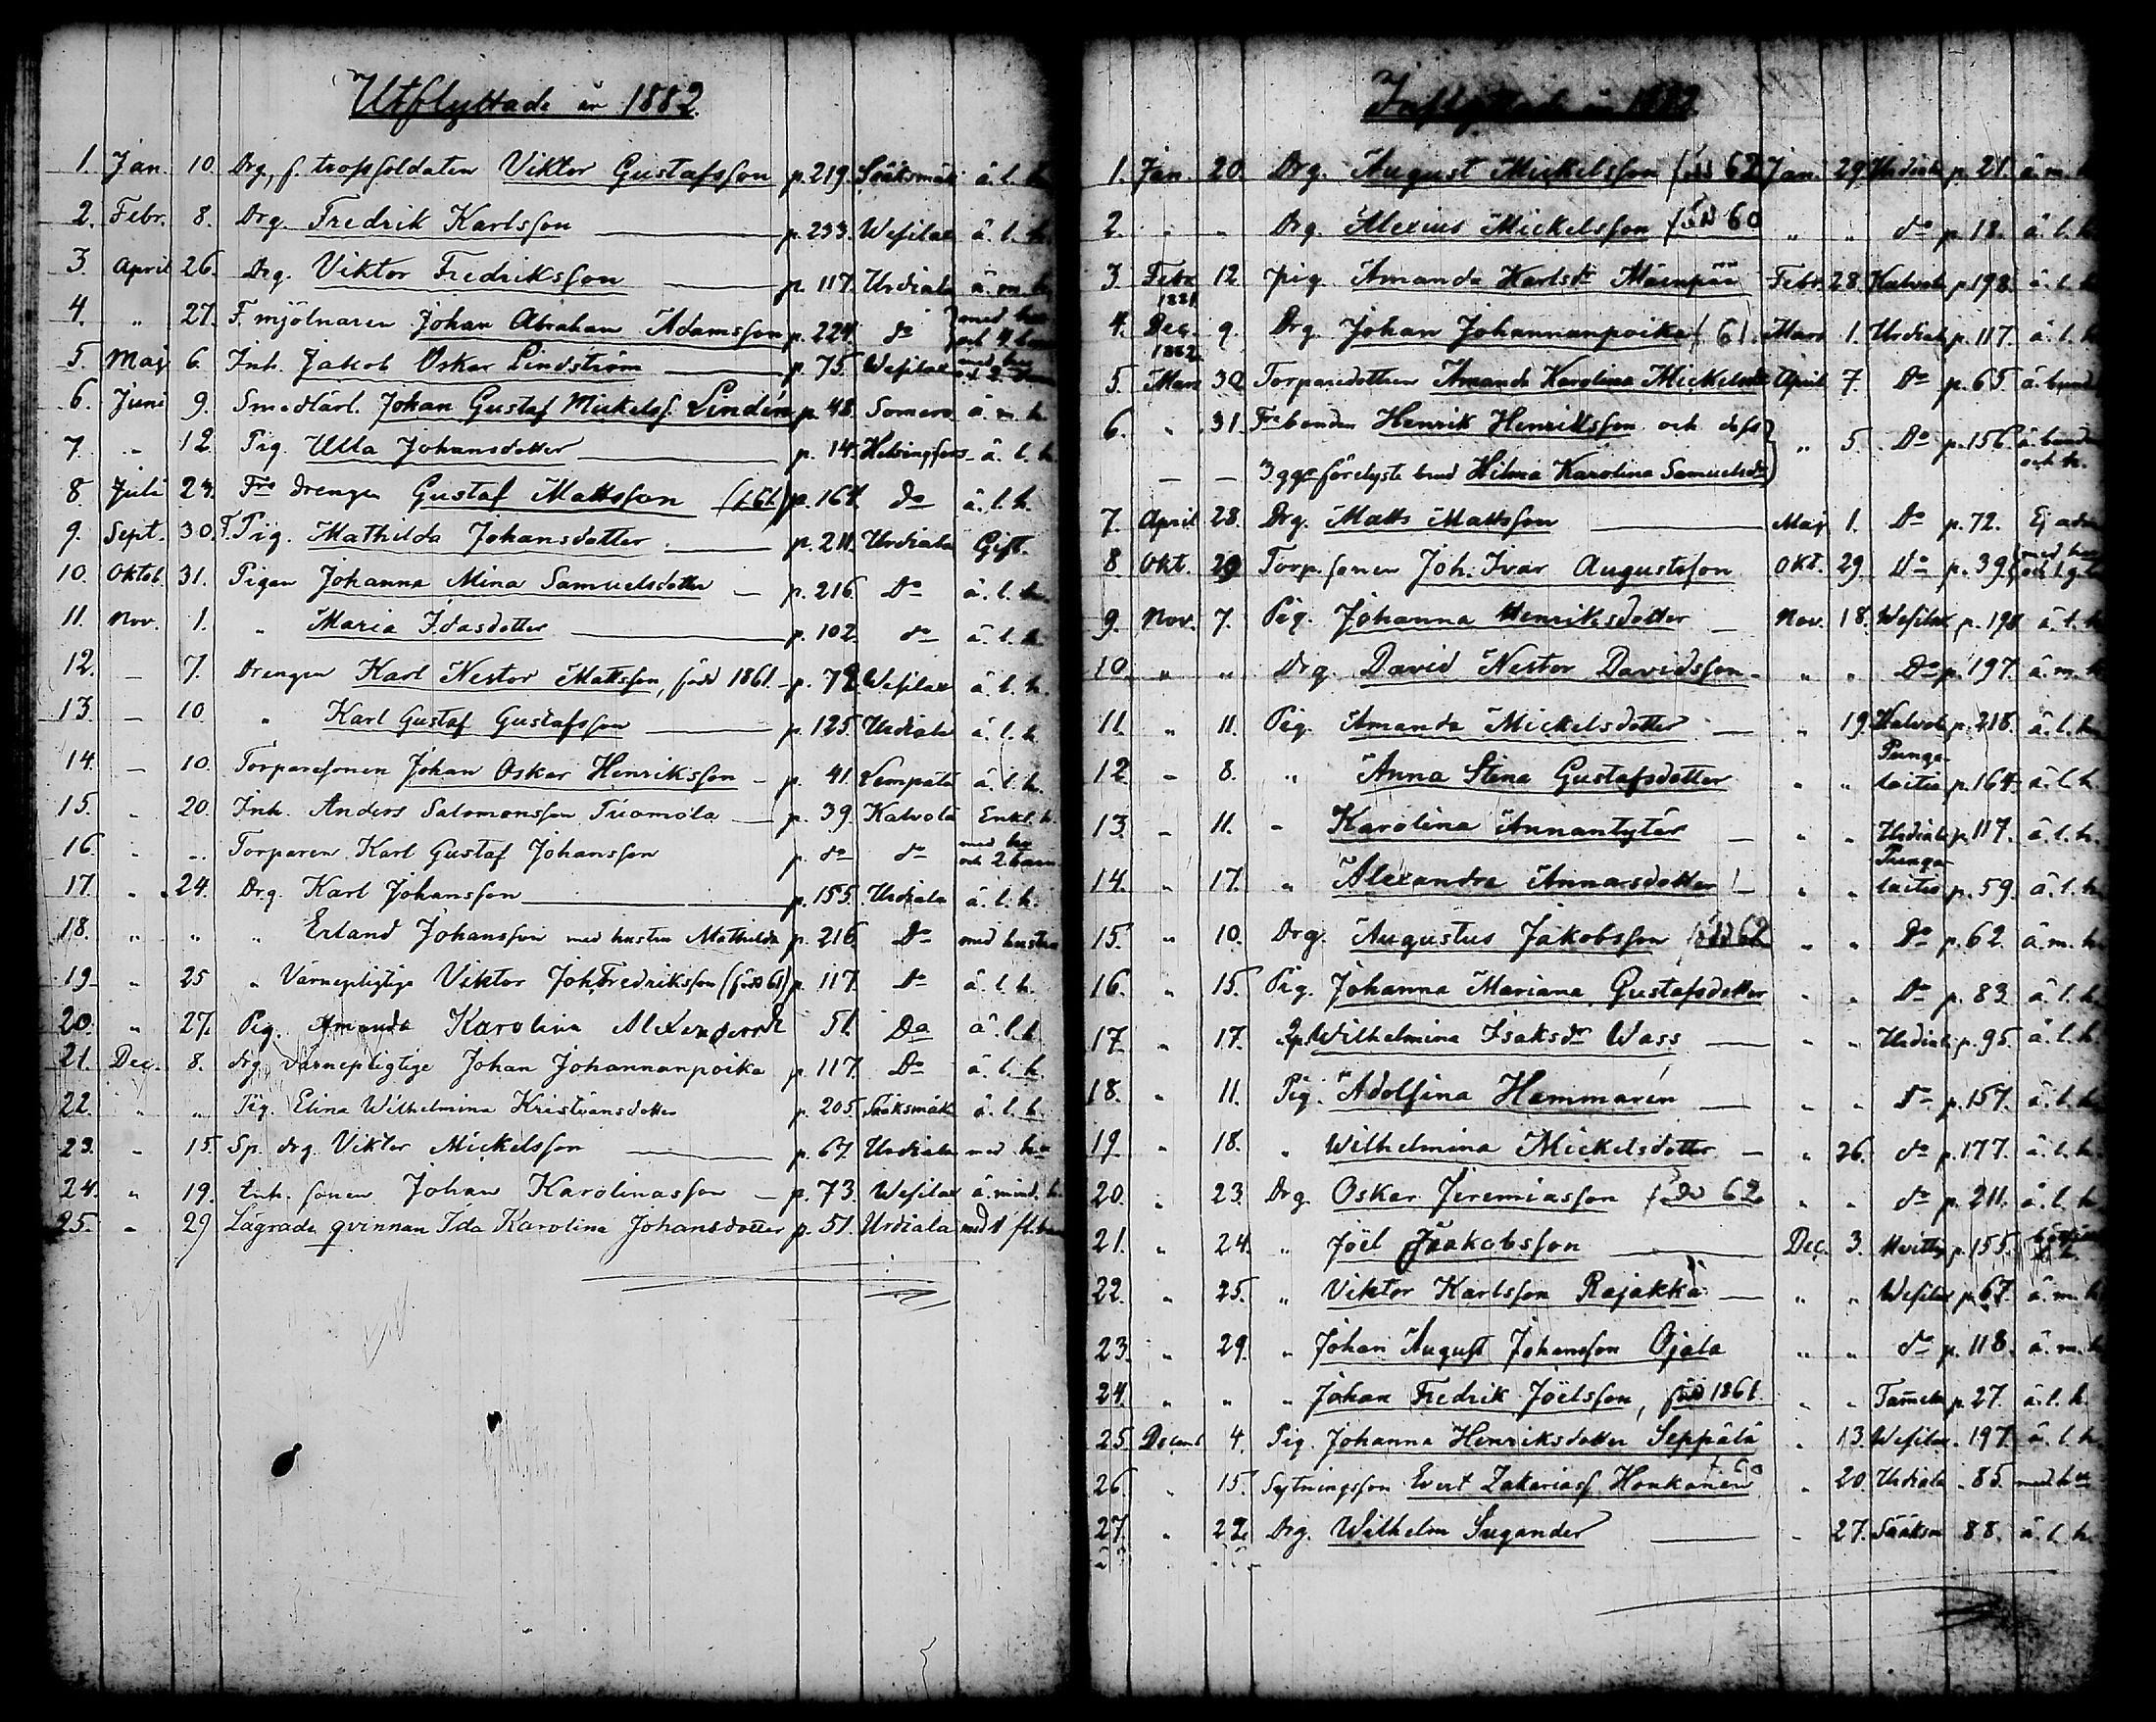 Utflyttade år 1882.
1. Jan. 10. Drg, f. trossoldaten Viktor Gustafsson p. 219. Sääksmäki ä. l. h.
2. Febr. 8. Drg. Fredrik Karlsson p. 233. Wesilax ä. l. h.
3. April 26. Drg. Viktor Fredriksson p. 117. Urdiala ä. m. h.
4. " 27. F. mjölnaren Johan Abraham Adamsson p. 224. do med hu och 4 barn
5. Maj 6. Inh. Jakob Oskar Lindström p. 75. Wesilax med hu och 2
6. Juni 9. Smedlärl. Johan Gustaf Mickelss. Lindén p. 48. Somero ä. m. h.
7. " 12. Pig. Ulla Johansdotter p. 14. Helsingfors ä. l. h.
8. Juli 23. Fre drengen Gustaf Mattsson p. 161. do ä. l. h.
9. Sept. 30. F. Pig. Mathilda Johansdotter p. 211. Urdiala Gift.
10. Oktob. 31. Pigan Johanna Mina Samuelsdotter p. 216. Do ä. l. h.
11. Nov. 1. " Maria Idasdotter p. 102. do ä. l. h.
12. – 7. Drengen Karl Nestor Mattsson, född 1861. p. 78. Wesilax ä. l. h.
13. – 10 " Karl Gustaf Gustafsson p. 125. Urdiala ä. l. h.
14. – 10. Torparesonen Johan Oskar Henriksson p. 41. Lempälä ä. l. h.
15. " 20. Inh. Anders Salomonsson Tuomola p. 39. Kalvola Enkl. h.
16. " " Torparen Karl Gustaf Johansson p. do do med hu och 2 barn
17. " 24. Drg. Karl Johansson p. 155. Urdiala ä. l. h.
18. " " " Erland Johansson med hustru Mathilda p. 216. Do med hustru
19. " 25 " Värnepligtige Viktor Joh. Fredriksson (född 61) p. 117. Do ä. l. h.
20. " 27. Pig. Amanda Karolina Alexandersdr 51. Do ä. l. h.
21. Dec. 8. drg värnepligtige Johan Johannanpoika p. 117. Do ä. l. h.
22. " " Pig. Elina Wilhelmina Kristiansdotter p. 205. Sääksmäki ä. l. h.
23. " 15. Sp. drg. Viktor Mickelsson p. 67. Urdiala med hu
24. " 19. Inh. sonen Johan Karolinasson p. 73. Wesilax ä. mind. h.
25. " 29 Lägrade qvinnan Ida Karolina Johansdotter p. 51. Urdiala med 1 fl. barn
Inflyttade år 1882
1. Jan. 20. Drg. August Mickelsson född 62 Jan. 29. Urdiala p. 21. ä. m. h.
2. " " Drg. Alexius Mickelsson född 60 " " do p. 18. ä. l. h.
3. Febr. 12. pig. Amanda Karlsdr Mäenpää Febr. 28. Kalvola p. 198. ä. l. h.
1881
4. Dec. 9. Drg. Johan Johannanpoika f. 61. Mars 1. Urdiala p. 117. ä. l. h.
1882
5. Mars 30. Torparedottren Amanda Karolina Mickelsdr April 7. Do p. 65. ä. bunden
6. " 31. Fre bonden Henrik Henriksson och dess " 5. Do p. 156. ä. bunden och h.
– – 3 ggr förelyste brud Hilma Karolina Samuelsdr
7. April 28. Drg. Matts Mattsson Maj 1. Do p. 72. Ej adm
8. Okt. 29 Torp. sonen Joh. Ivar Augustsson Okt. 29. Do p. 39. med hu och 1 g.
9. Nov. 7. Pig. Johanna Henriksdotter Nov. 18. Wesilax p. 198. ä. l. h.
10. " " Drg. David Nestor Davidsson " " Do p. 197. ä. m. h.
11. " 11. Pig. Amanda Mickelsdotter " 19. Kalvola p. 218. ä. l. h.
12. – 8. " Anna Stina Gustafsdotter " " Punga-laitio p. 164. ä. l. h.
13. – 11. " Karolina Annantytär " " Urdiala p. 117. ä. l. h.
14. " 17. " Alexandra Annasdotter " " Punga-laitio p. 59. ä. l. h.
15. " 10. Drg. Augustus Jakobsson född 62 " " Do p. 62. ä. m. h.
16. " 15. Pig. Johanna Mariana Gustafsdotter " " Do p. 83. ä. l. h.
17. " 17. Sp. Wilhelmina Isaksdr Wass " " Urdiala p. 95. ä. l. h.
18. " 11. Pig. Adolfina Hammarén " " do p. 157. ä. l. h.
19. " 18. " Wilhelmina Mickelsdotter " 26. do p. 177. ä. l. h.
20. " 23. Drg. Oskar Jeremiasson född 62 " " do p. 211. ä. l. h.
21. " 24. " Joel Jaakobsson Dec. 3. p. 155.
22. " 25. " Viktor Karlsson Rajakka " " Wesilax p. 67. ä. m. h.
23. " 29. " Johan August Johansson Ojala " " do p. 118. ä. m. h.
24. " " " Johan Fredrik Joelsson, född 1861. " " Tammela p. 27. ä. l. h.
25 Decemb 4. Pig. Johanna Henriksdotter Seppälä " 13. Wesilax 197. ä. l. h.
26. " 15. Sytningsson Evert Zakariass. Honkanen f. 60 " 20. Urdiala " 85. med hu
27. " 22. Drg. Wilhelm Sugander " 27. Sääksm 88. ä. l. h.